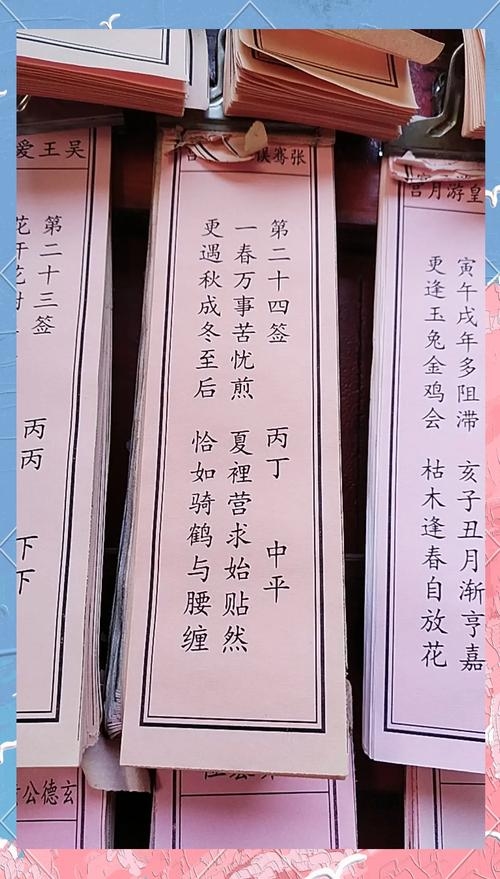 吴王爱
第二十三签 丙丙 下下
张骞误
第二十四签 丙丁 中平
一春万事苦忧煎 夏裡营求始贴然
更遇秋成冬至后 恰如骑鹤与腰缠
皇游月宫
寅午戌年多阻滞 亥子丑月渐亨嘉
更逢玉兔金鸡会 枯木逢春自放花
玄德公